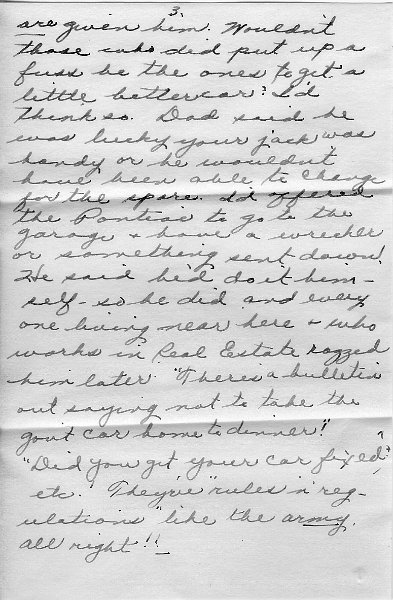 3.
are given him. Wouldn't
those who did put up a
fuss be the ones to get a
little better car? I'd
think so. Dad said he
was lucky your jack was
handy or he wouldn't
have been able to change
for the spare. I'd offered
the Pontiac to go to the
garage & have a wrecker
or something sent down!
He said he'd do it him-
self - so he did and every
one living near here & who
works in Real Estate razzed
him later. "There's a bulletin
out saying not to take the
gov't car home to dinner!"
"Did you get your car fixed"
etc. They're "rules 'n' reg-
ulations" like the army.
all right!!